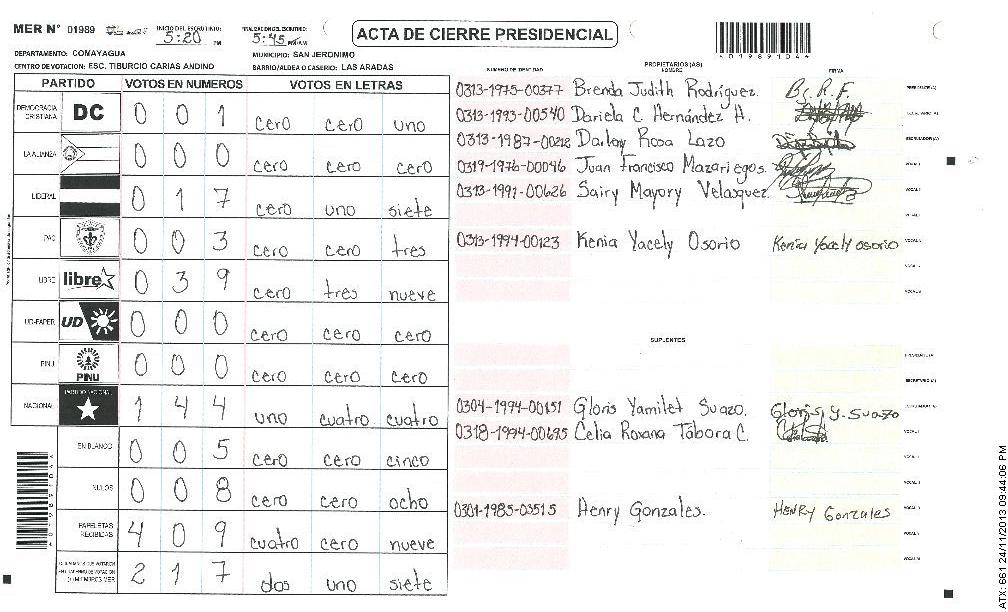 MER N° 01989
INICIO DEL ESCRUTINIO: 5:20 PM
FINALIZACION DEL ESCRUTINIO: 5:45
ACTA DE CIERRE PRESIDENCIAL
DEPARTAMENTO: COMAYAGUA
MUNICIPIO: SAN JERONIMO
CENTRO DE VOTACION: ESC. TIBURCIO CARIAS ANDINO
BARRIO/ALDEA O CASERIO: LAS ARADAS
PARTIDO VOTOS EN NUMEROS VOTOS EN LETRAS
DEMOCRACIA CRISTIANA DC 0 0 1 cero cero uno
LA ALIANZA 0 0 0 cero cero cero
LIBERAL 0 1 7 cero uno siete
PAC 0 0 3 cero cero tres
LIBRE libre 0 3 9 cero tres nueve
UD-FAPER UD 0 0 0 cero cero cero
PINU PINU 0 0 0 cero cero cero
NACIONAL PARTIDO NACIONAL 1 4 4 uno cuatro cuatro
EN BLANCO 0 0 5 cero cero cinco
NULOS 0 0 8 cero cero ocho
PAPELETAS RECIBIDAS 4 0 9 cuatro cero nueve
2 1 7 dos uno siete
NUMERO DE IDENTIDAD PROPIETARIOS (AS) NOMBRE FIRMA
0313-1975-00377 Brenda Judith Rodríguez. B.J.R.F.
0313-1993-00540 Dariela C Hernández H.
0313-1987-00212 Rosa Lazo
0319-1976-00046 Juan Francisco Mazariegos.
0313-1991-00626 Sairy Mayory Velasquez.
0313-1994-00123 Kenia Yacely Osorio Kenia Yacely Osorio
SUPLENTES
0304-1994-00151 Gloris Yamilet Suazo. Gloris Y. Suazo
0318-1994-00695 Celia Roxana Tábora C.
0301-1985-03515 Henry Gonzales. HENRY Gonzales
ATX: 661 24/11/2013 09:44:06 PM